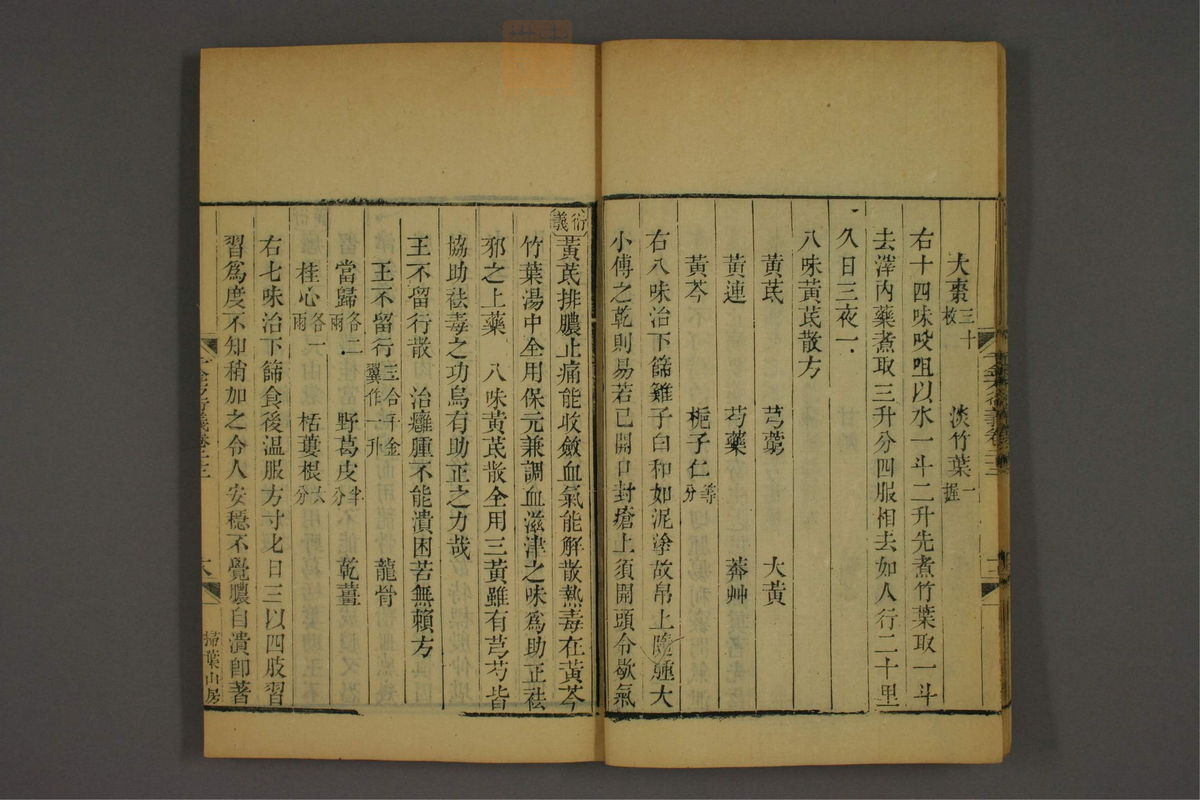 大棗三十枚　淡竹葉一握
右十四味㕮咀以水一斗二升先煮竹葉取一斗
去滓内藥煮取三升分四服相去如人行二十里
久日三夜一
八味黃芪散方
黃芪　芎藭　大黃
黃連　芍藥　莽艸
黃芩　梔子仁等分
右八味治下篩雞子白和如泥塗故帛上隨腫大
小傅之乾則易若已開口封瘡上須開頭令歇氣
衍義 黃芪排膿止痛能收斂血氣能解散熱毒在黃芩
竹葉湯中全用保元兼調血滋津之味爲助正祛
邪之上藥　八味黃芪散全用三黃雖有芎芍皆
協助祛毒之功烏有助正之力哉
王不留行散　治癰腫不能潰困苦無賴方
王不留行三合千金翼作一升　龍骨
當歸各二兩　野葛皮半分　乾薑
桂心各一兩　栝蔞根六分
右七味治下篩食後温服方寸匕日三以四肢習
習爲度不知稍加之令人安穩不覺膿自潰卽著
千金方衍義卷二十二
掃葉山房